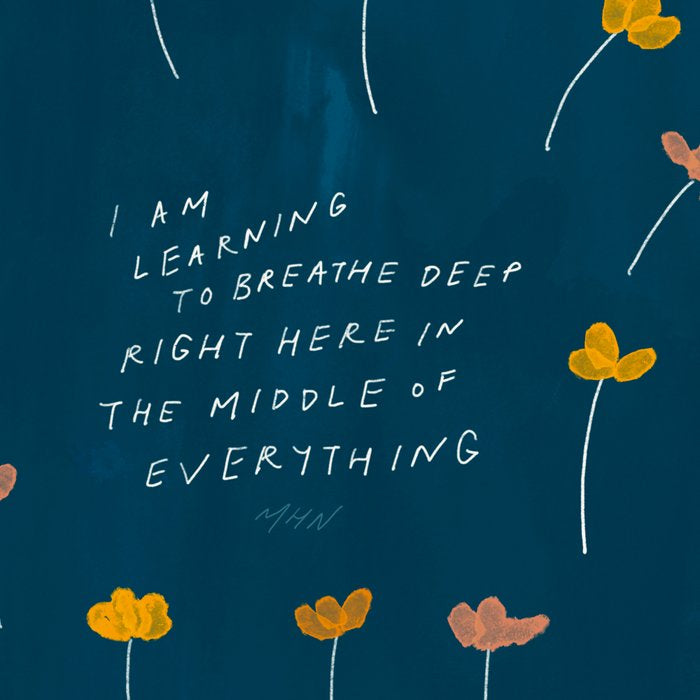 I AM
LEARNING
TO BREATHE DEEP
RIGHT HERE IN
THE MIDDLE OF
EVERYTHING
MHN